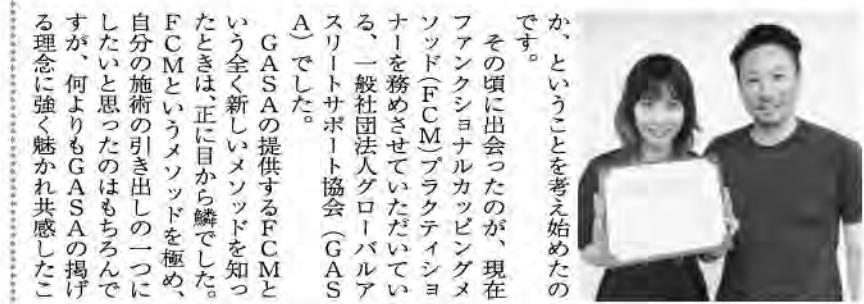 か、ということを考え始めたの
です。
その頃に出会ったのが、現在
ファンクショナルカッピングメ
ソッド(FCM)プラクティショ
ナーを務めさせていただいてい
る、一般社団法人グローバルア
スリートサポート協会(GAS
A)でした。
GASAの提供するFCMと
いう全く新しいメソッドを知っ
たときは、正に目から鱗でした。
FCMというメソッドを極め、
自分の施術の引き出しの一つに
したいと思ったのはもちろんで
すが、何よりもGASAの掲げ
る理念に強く魅かれ共感したこ